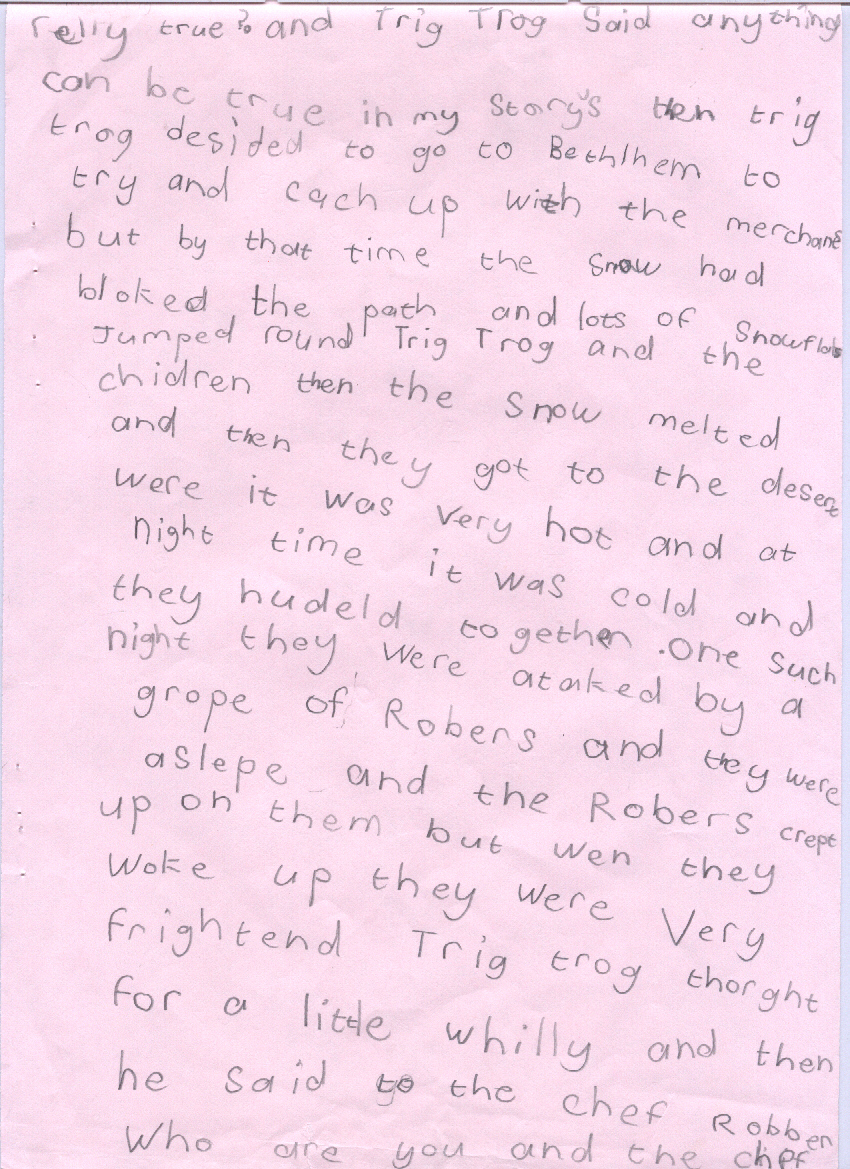 relly true? and Trig Trog Said anything
can be true in my Story's then trig
trog desided to go to Bethlhem to
try and cach up with the merchane
but by that time the Snow had
bloked the path and lots of Snowflaks
Jumped round Trig Trog and the
chidren then the Snow melted
and then they got to the desert
were it was Very hot and at
night time it was cold and
they hudeld togethen .One Such
night they were ataked by a
grope of Robers and they were
aslepe and the Robers crept
up on them but wen they
woke up they were Very
frightend Trig trog thorght
for a little whilly and then
he Said to the chef Robben
Who are you and the chef